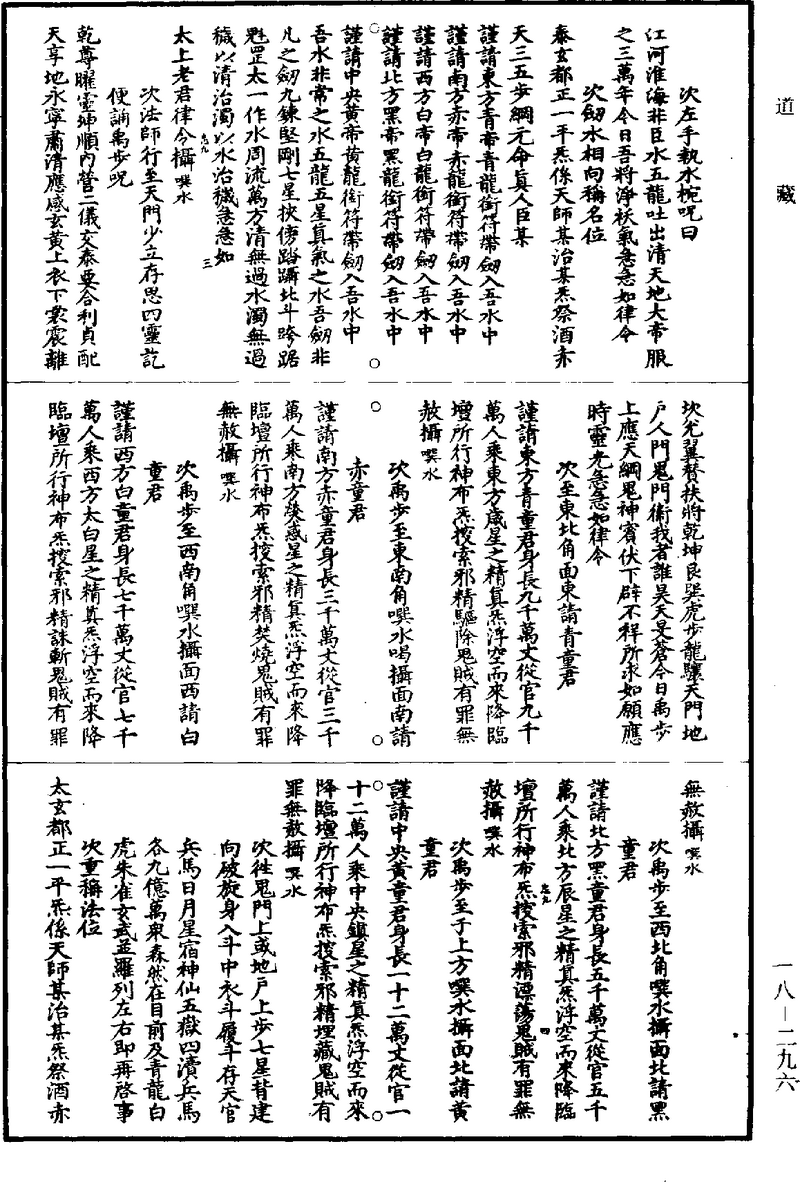 道藏
次左手執水椀呪曰
江河淮海非臣水五龍吐出清天地大帝服
之三萬年今日吾將淨祅氣急急如律令
次劒水相向稱名位
泰玄都正一平炁係天師某治某炁祭酒赤
天三五步綱元命真人臣某
謹請東方青帝青龍銜符帶劒入吾水中
謹請南方赤帝赤龍銜符帶劒入吾水中
謹請西方白帝白龍銜符帶劒入吾水中
謹請北方黑帝黑龍銜符帶劒入吾水中
謹請中央黃帝黃龍銜符帶劒入吾水中
吾水非常之水五龍五星真氣之水吾劒非
凡之劒九鍊堅剛七星挾傍踏躡北斗跨踞
魁罡太一作水周流萬方清無過水濁無過
穢以清治濁以水治穢急急如
志九
三
太上老君律令攝 噀水
次法師行至天門少立存思四靈訖
便誦禹步呪
乾尊曜靈坤順內營二儀交泰要合利貞配
天享地永寧肅清應感玄黃上衣下裳震離
坎兊翼贊扶將乾坤艮巽虎步龍驤天門地
戶人門鬼門衛我者誰昊天旻蒼今日禹步
上應天綱鬼神賓伏下辟不祥所求如願應
時靈光急急如律令
次至東北角面東請青童君
謹請東方青童君身長九千萬丈從官九千
萬人乘東方歲星之精真炁浮空而來降臨
壇所行神布炁搜索邪精驅除鬼賊有罪無
赦攝 噀水
次禹步至東南角噀水喝攝面南請
赤童君
謹請南方赤童君身長三千萬丈從官三千
萬人乘南方熒惑星之精真炁浮空而來降
臨壇所行神布炁搜索邪精焚燒鬼賊有罪
無赦攝 噀水
次禹步至西南角噀水攝面西請白
童君
謹請西方白童君身長七千萬丈從官七千
萬人乘西方太白星之精真炁浮空而來降
臨壇所行神布炁搜索邪精誅斬鬼賊有罪
無赦攝 噀水
次禹步至西北角噀水攝面北請黑
童君
謹請北方黑童君身長五千萬丈從官五千
萬人乘北方辰星之精真炁浮空而來降臨
志九
四
壇所行神布炁搜索邪精漂蕩鬼賊有罪無
赦攝 噀水
次禹步至于上方噀水攝面北請黃
童君
謹請中央黃童君身長一十二萬丈從官一
十二萬人乘中央鎮星之精真炁浮空而來
降臨壇所行神布炁搜索邪精埋藏鬼賊有
罪無赦攝 噀水
次往鬼門上或地戶上步七星背建
向破旋身入斗中永斗履斗存天官
兵馬日月星宿神仙五嶽四瀆兵馬
各九億萬衆森然在目前及青龍白
虎朱雀玄武並羅列左右即再啓事
次重稱法位
太玄都正一平炁係天師某治某炁祭酒赤
一八－二九六